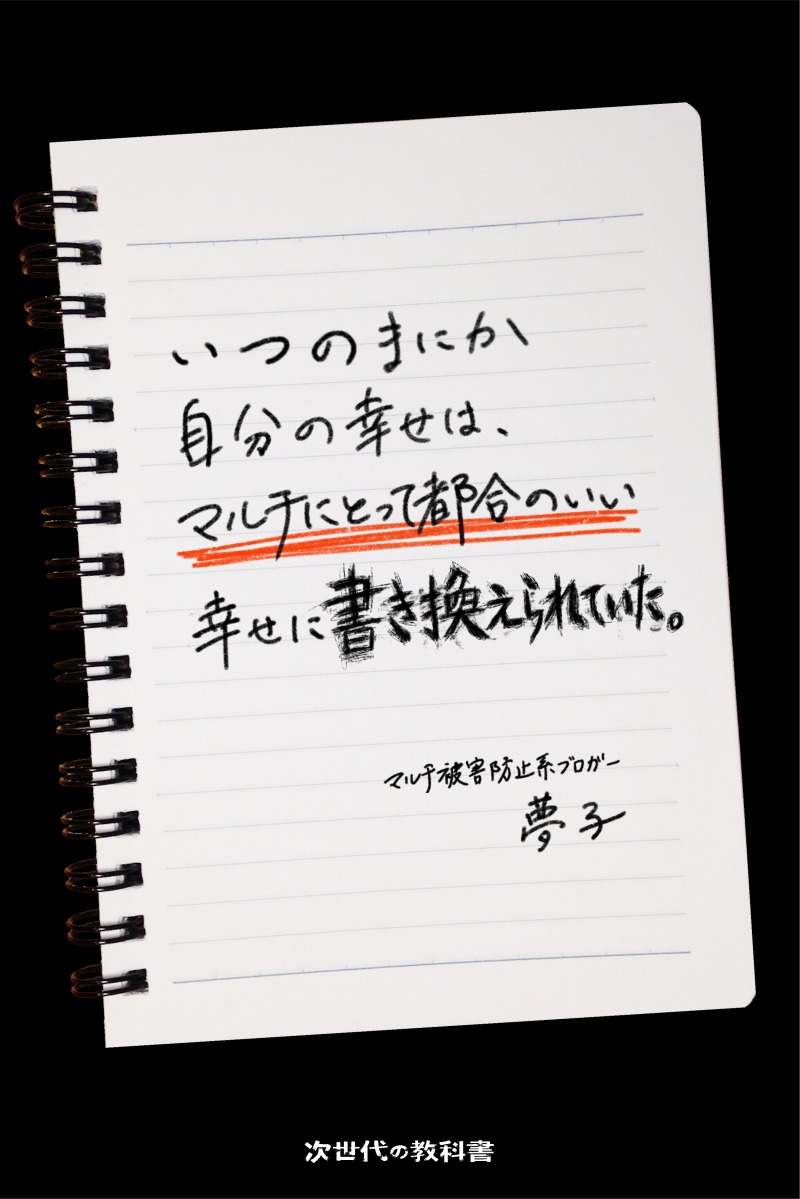 いつのまにか
自分の幸せは、
マルチにとって都合のいい
幸せに書き換えられていた。
マルチ被害防止系ブロガー
夢子
次世代の教科書